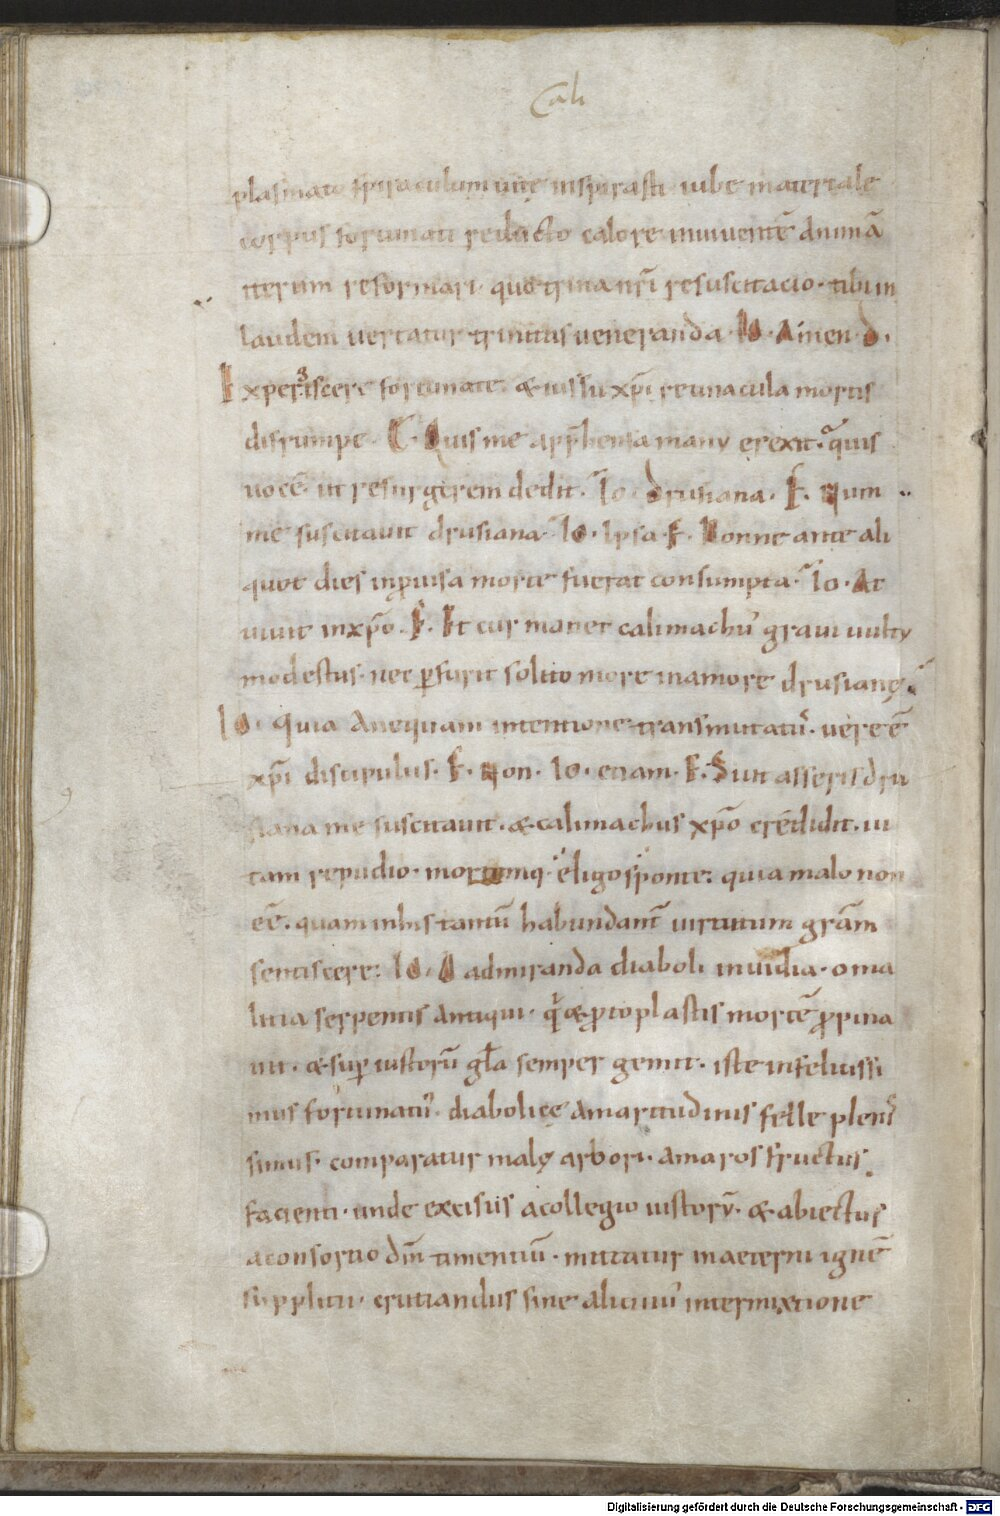 Cali
plasmato spiraculum uitę inspirasti iube materiale
corpus fortunati reducto calore uiuentē animā
iterum reformari · quo trina nr̄i resuscitacio · tibi in
laudem uertatur trinitas ueneranda · Io · Amen · D ·
Expergiscere fortunate · & iussu xp̄i retinacula mortis
disrumpe · F · Quis me app̄hensa manu erexit · quis
uocē · ut resurgerem dedit · Io · Drusiana · F · Num
me suscitauit drusiana · Io · Ipsa · F · Nonne ante ali
quot dies inp̱uisa morte fuerat consumpta · Io · At
uiuit in xp̄o · F · Et cur manet calimachus graui uultu
modestus · nec p̱furit solito more in amore drusianę ·
Io · Quia a nequam intentione transmutatur · uere ē
xp̄i discipulus · F · Non · Io · etiam · F · Si ut asseris dru
siana me suscitauit · & calimachus xp̄o credidit · ui
tam repudio · mortemq· eligo sponte : quia malo non
eē · quam in his tantū habundant̄ uirtutum grām
sentiscere : Io · O admiranda diaboli inuidia · o ma
litia serpentis antiqui · q̓ & p̱toplastis mortē p̱pina
uit · & sup̱ iustorū gl̄a semper gemit · iste infelicissi
mus fortunatus · diabolicę amaritudinis felle pleniś
simus · comparatur malę arbori · amaros fructus
facienti · unde excisus a collegio iustorū · & abiectus
a consortio dm̄ timentiū · mittatur in aeterni ignē
supplicii · cruciandus sine alicuius intermixtione
Digitalisierung gefördert durch die Deutsche Forschungsgemeinschaft - DFG